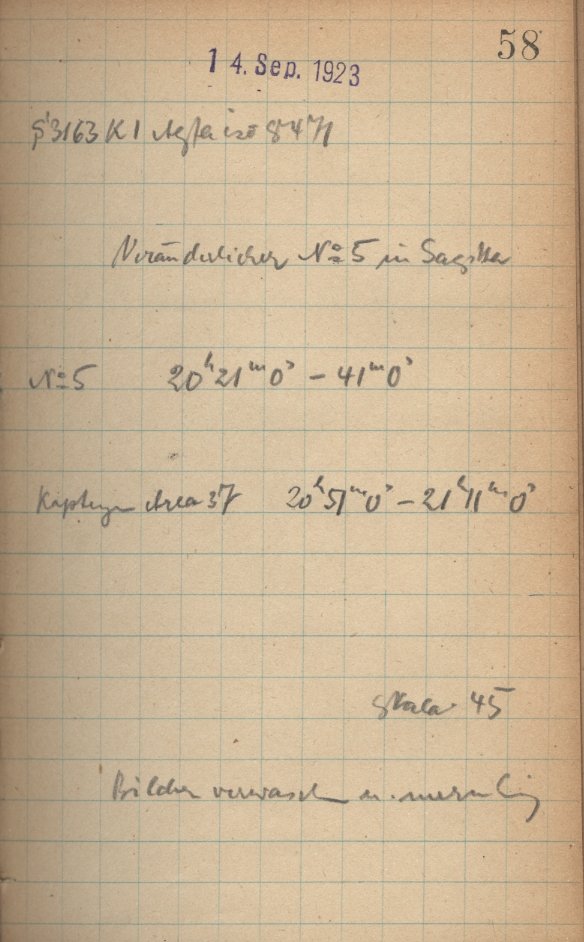 58
14. Sep. 1923
3163 K1 Agfa iso 8471
Veränderlicher No 5 in Sagitta
No 5 20h21m0s – 41m0s
Kapteyn Area 37 20h51m0s – 21h11m0s
Skala 45
Bilder verwaschen u.